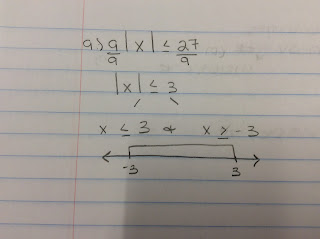 a) 9/9 |x| ≤ 27/9
|x| ≤ 3
x ≤ 3 & x ≥ -3
-3 3